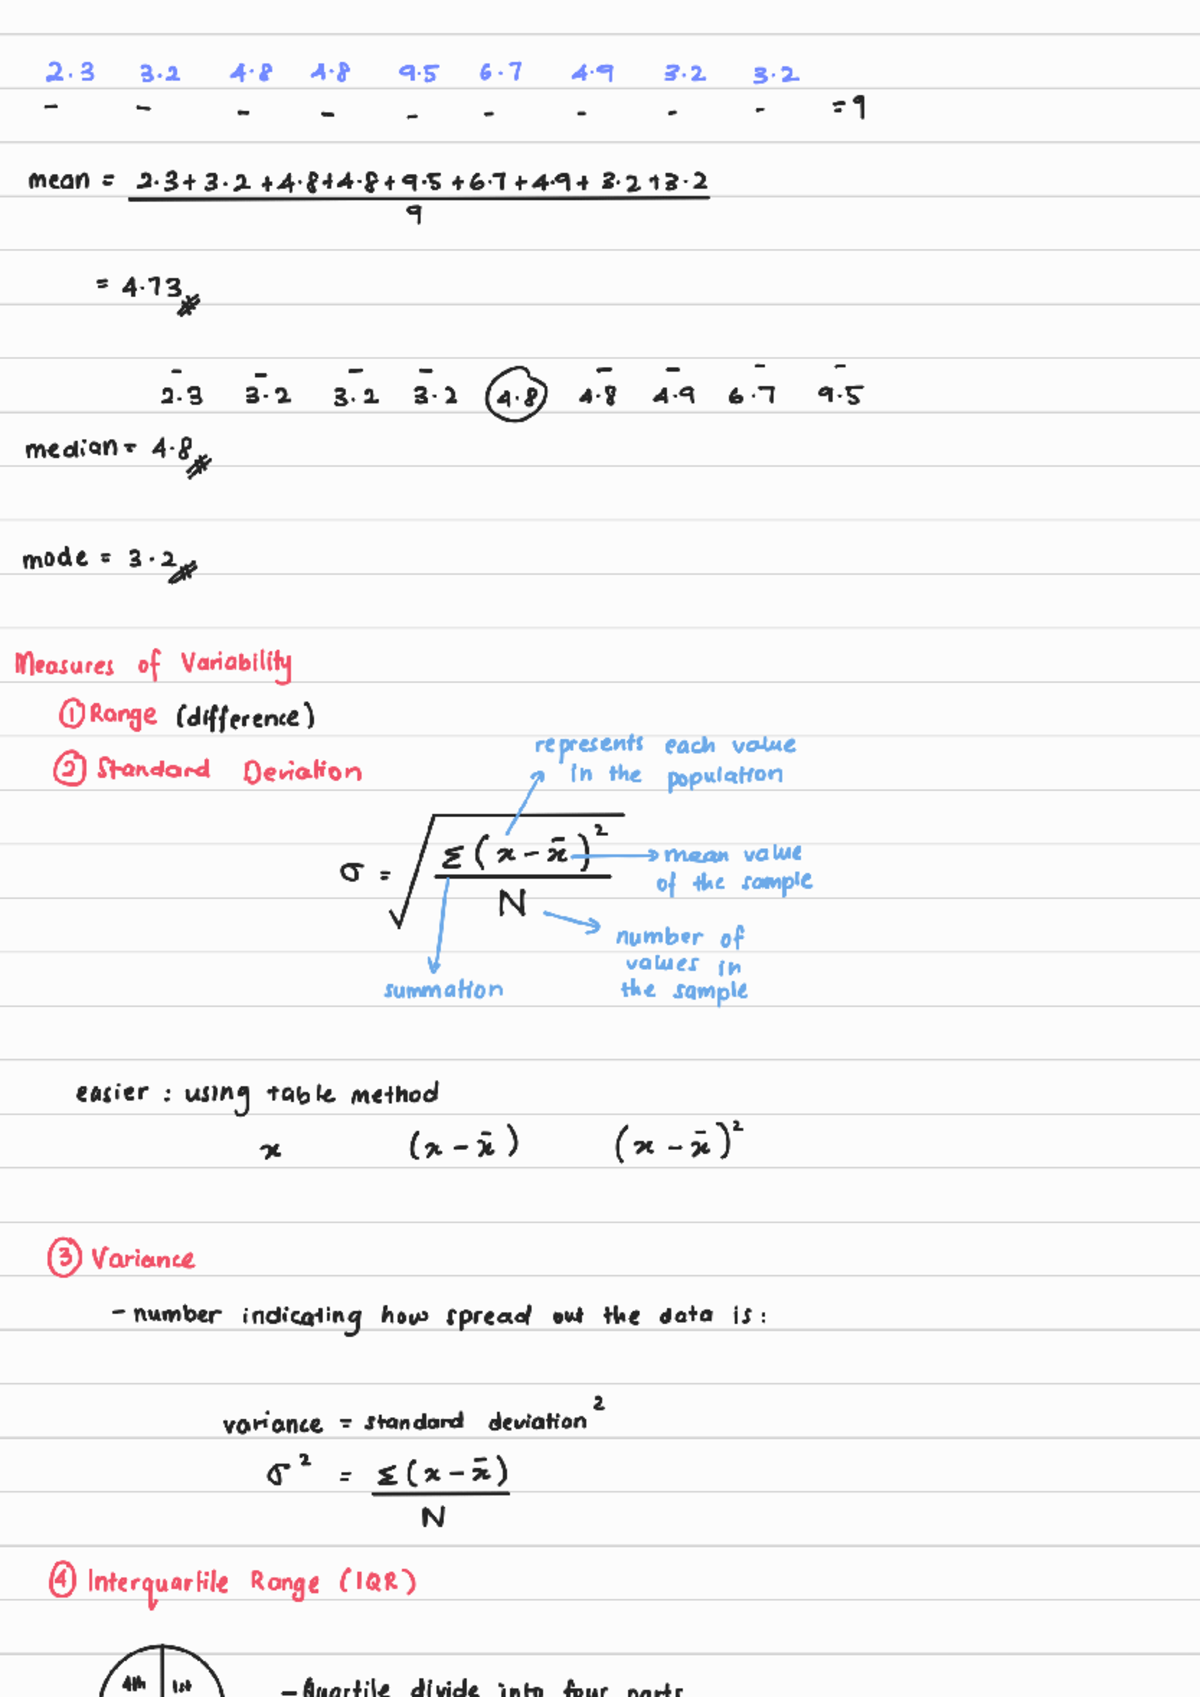 2.3 3.2 4.8 4.8 9.5 6.7 4.9 3.2 3.2
- - - - - - - - - = 9
mean = 2.3+3.2+4.8+4.8+9.5+6.7+4.9+3.2+3.2
9
= 4.73
2.3 3.2 3.2 3.2 4.8 4.8 4.9 6.7 9.5
median = 4.8
mode = 3.2
Measures of Variability
① Range (difference)
② Standard Deviation
represents each value
in the population
σ = √ Σ(x - x̄)²
N
mean value
of the sample
number of
values in
the sample
summation
easier : using table method
x (x - x̄) (x - x̄)²
③ Variance
- number indicating how spread out the data is:
variance = standard deviation²
σ² = Σ(x - x̄)
N
④ Interquartile Range (IQR)
4th 1st
- Quartile divide into four parts